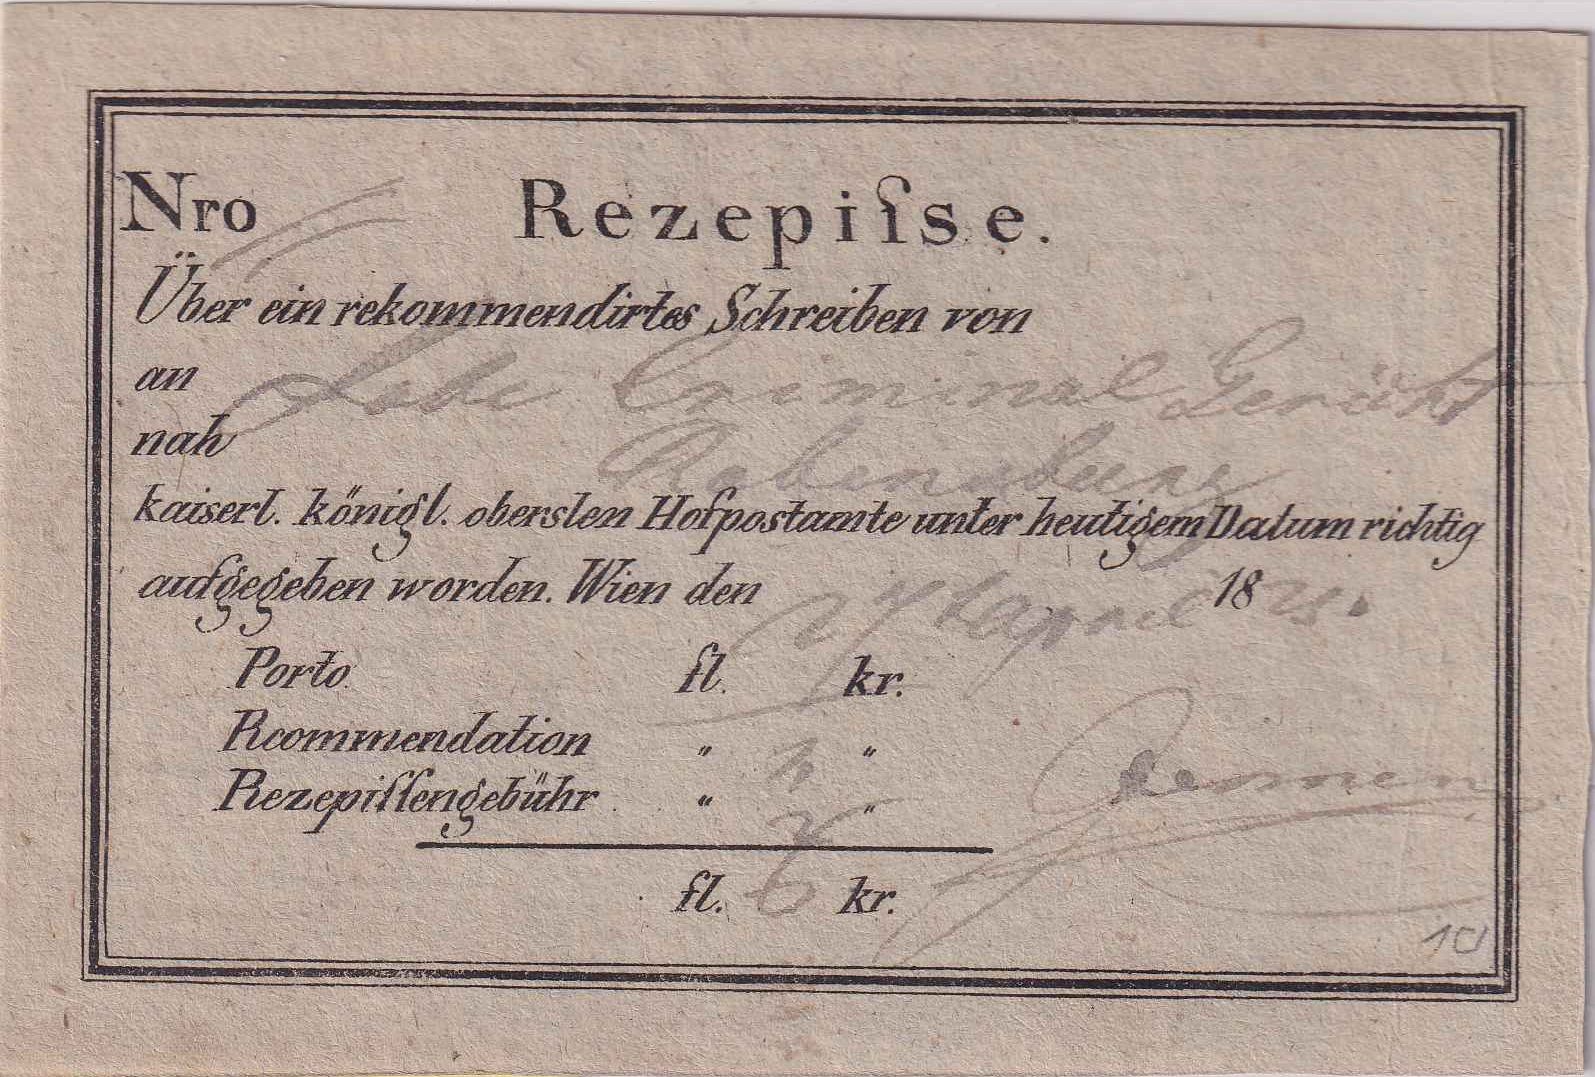 Nro Rezepiſse.
Über ein rekommendirtes Schreiben von
an Criminal Gericht
nah Rabensburg
kaiserl. königl. obersten Hofpostamte unter heutigem Datum richtig
aufgegeben worden. Wien den 27t April 1825.
Porto fl. kr.
Rcommendation " 4 "
Rezepiſſengebühr " 2 "
fl. 6 kr.
10